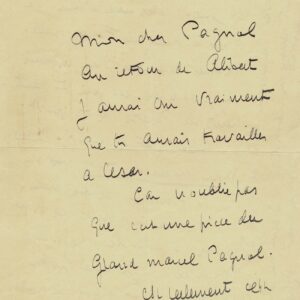 Mon cher Pagnol
Au retour de Alibert
J aurai cru vraiment
que tu aurais travailler
a Cesar.
Car n oublie pas
que c est une piece du
Grand Marcel Pagnol.
seulement